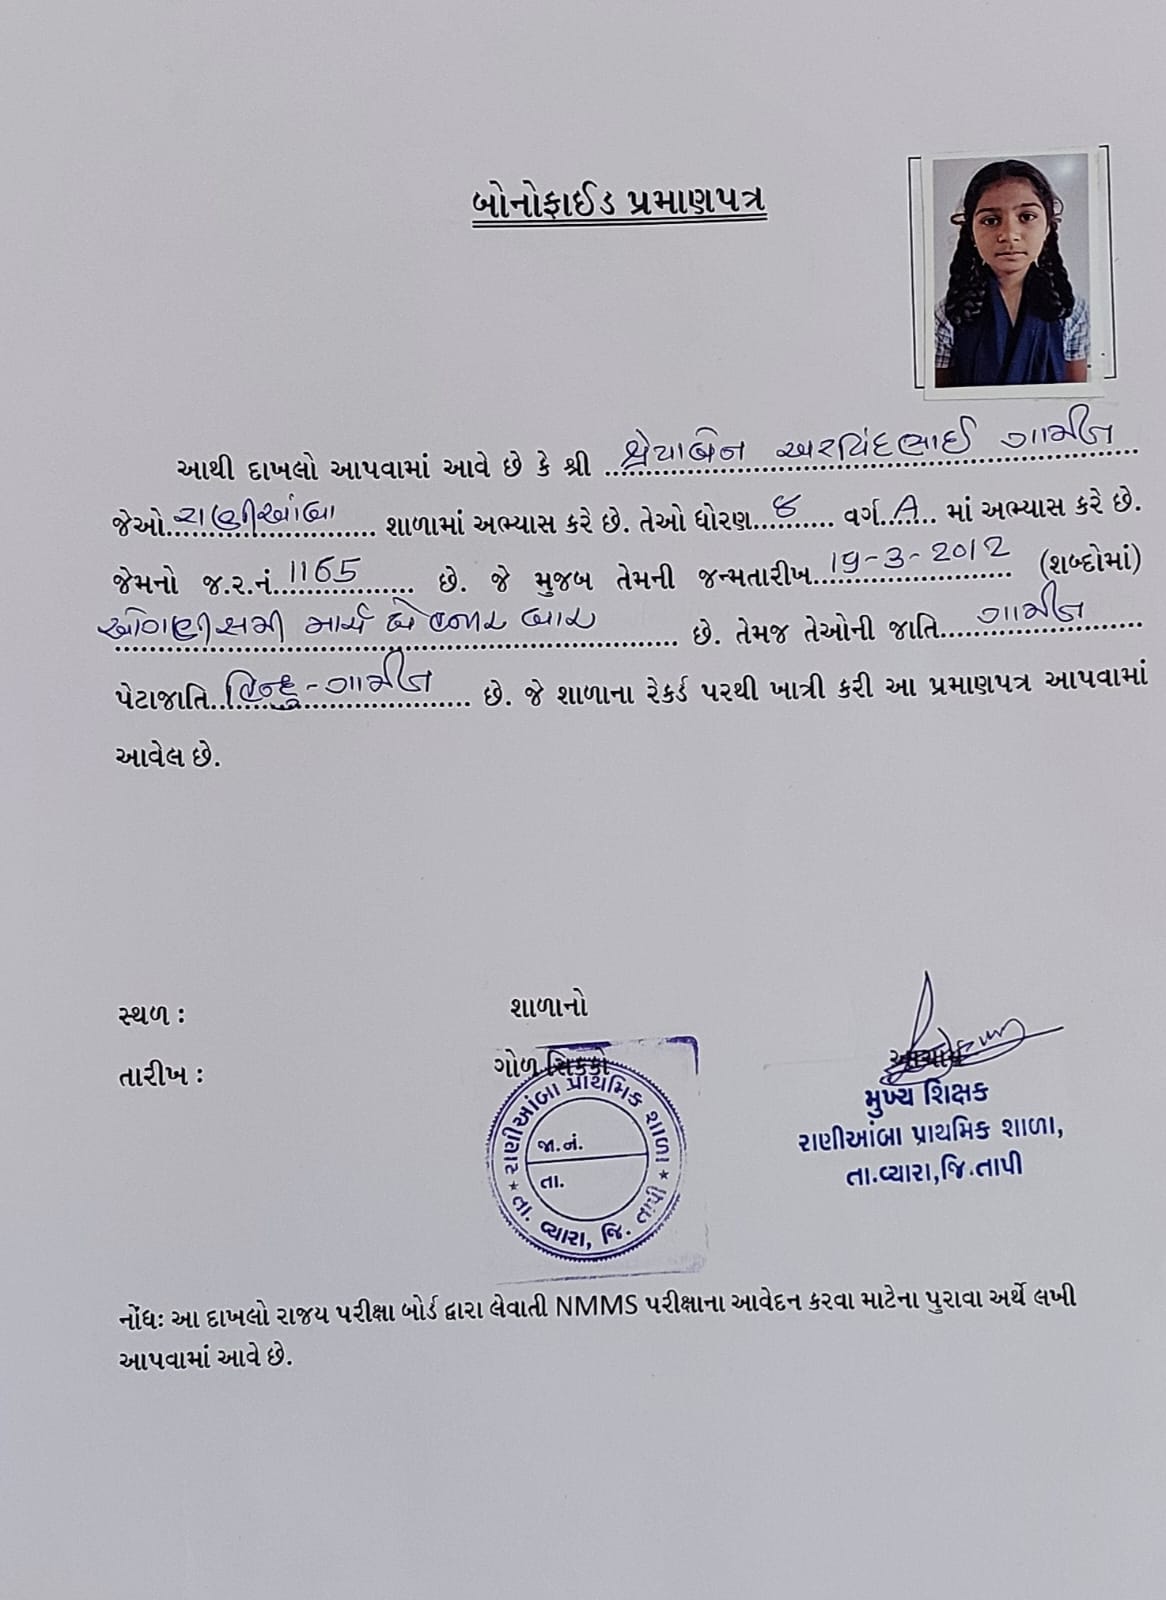 બોનોફાઈડ પ્રમાણપત્ર
આથી દાખલો આપવામાં આવે છે કે શ્રી શ્રેયાબેન અરવિંદભાઈ ગામીત
જેઓ રાણીઆંબા શાળામાં અભ્યાસ કરે છે. તેઓ ધોરણ ૮ વર્ગ A માં અભ્યાસ કરે છે.
જેમનો જ.ર.નં. 1165 છે. જે મુજબ તેમની જન્મતારીખ 19-3-2012 (શબ્દોમાં)
ઓગણીસમી માર્ચ બે હજાર બાર છે. તેમજ તેઓની જાતિ ગામીત
પેટાજાતિ હિન્દુ-ગામીત છે. જે શાળાના રેકર્ડ પરથી ખાત્રી કરી આ પ્રમાણપત્ર આપવામાં
આવેલ છે.
સ્થળ : શાળાનો
તારીખ : ગોળ સિક્કો આચાર્ય
મુખ્ય શિક્ષક
રાણીઆંબા પ્રાથમિક શાળા,
તા.વ્યારા,જિ.તાપી
રાણીઆંબા પ્રાથમિક શાળા
જા.નં.
તા.
* તા. વ્યારા, જિ. તાપી *
નોંધઃ આ દાખલો રાજય પરીક્ષા બોર્ડ દ્વારા લેવાતી NMMS પરીક્ષાના આવેદન કરવા માટેના પુરાવા અર્થે લખી
આપવામાં આવે છે.